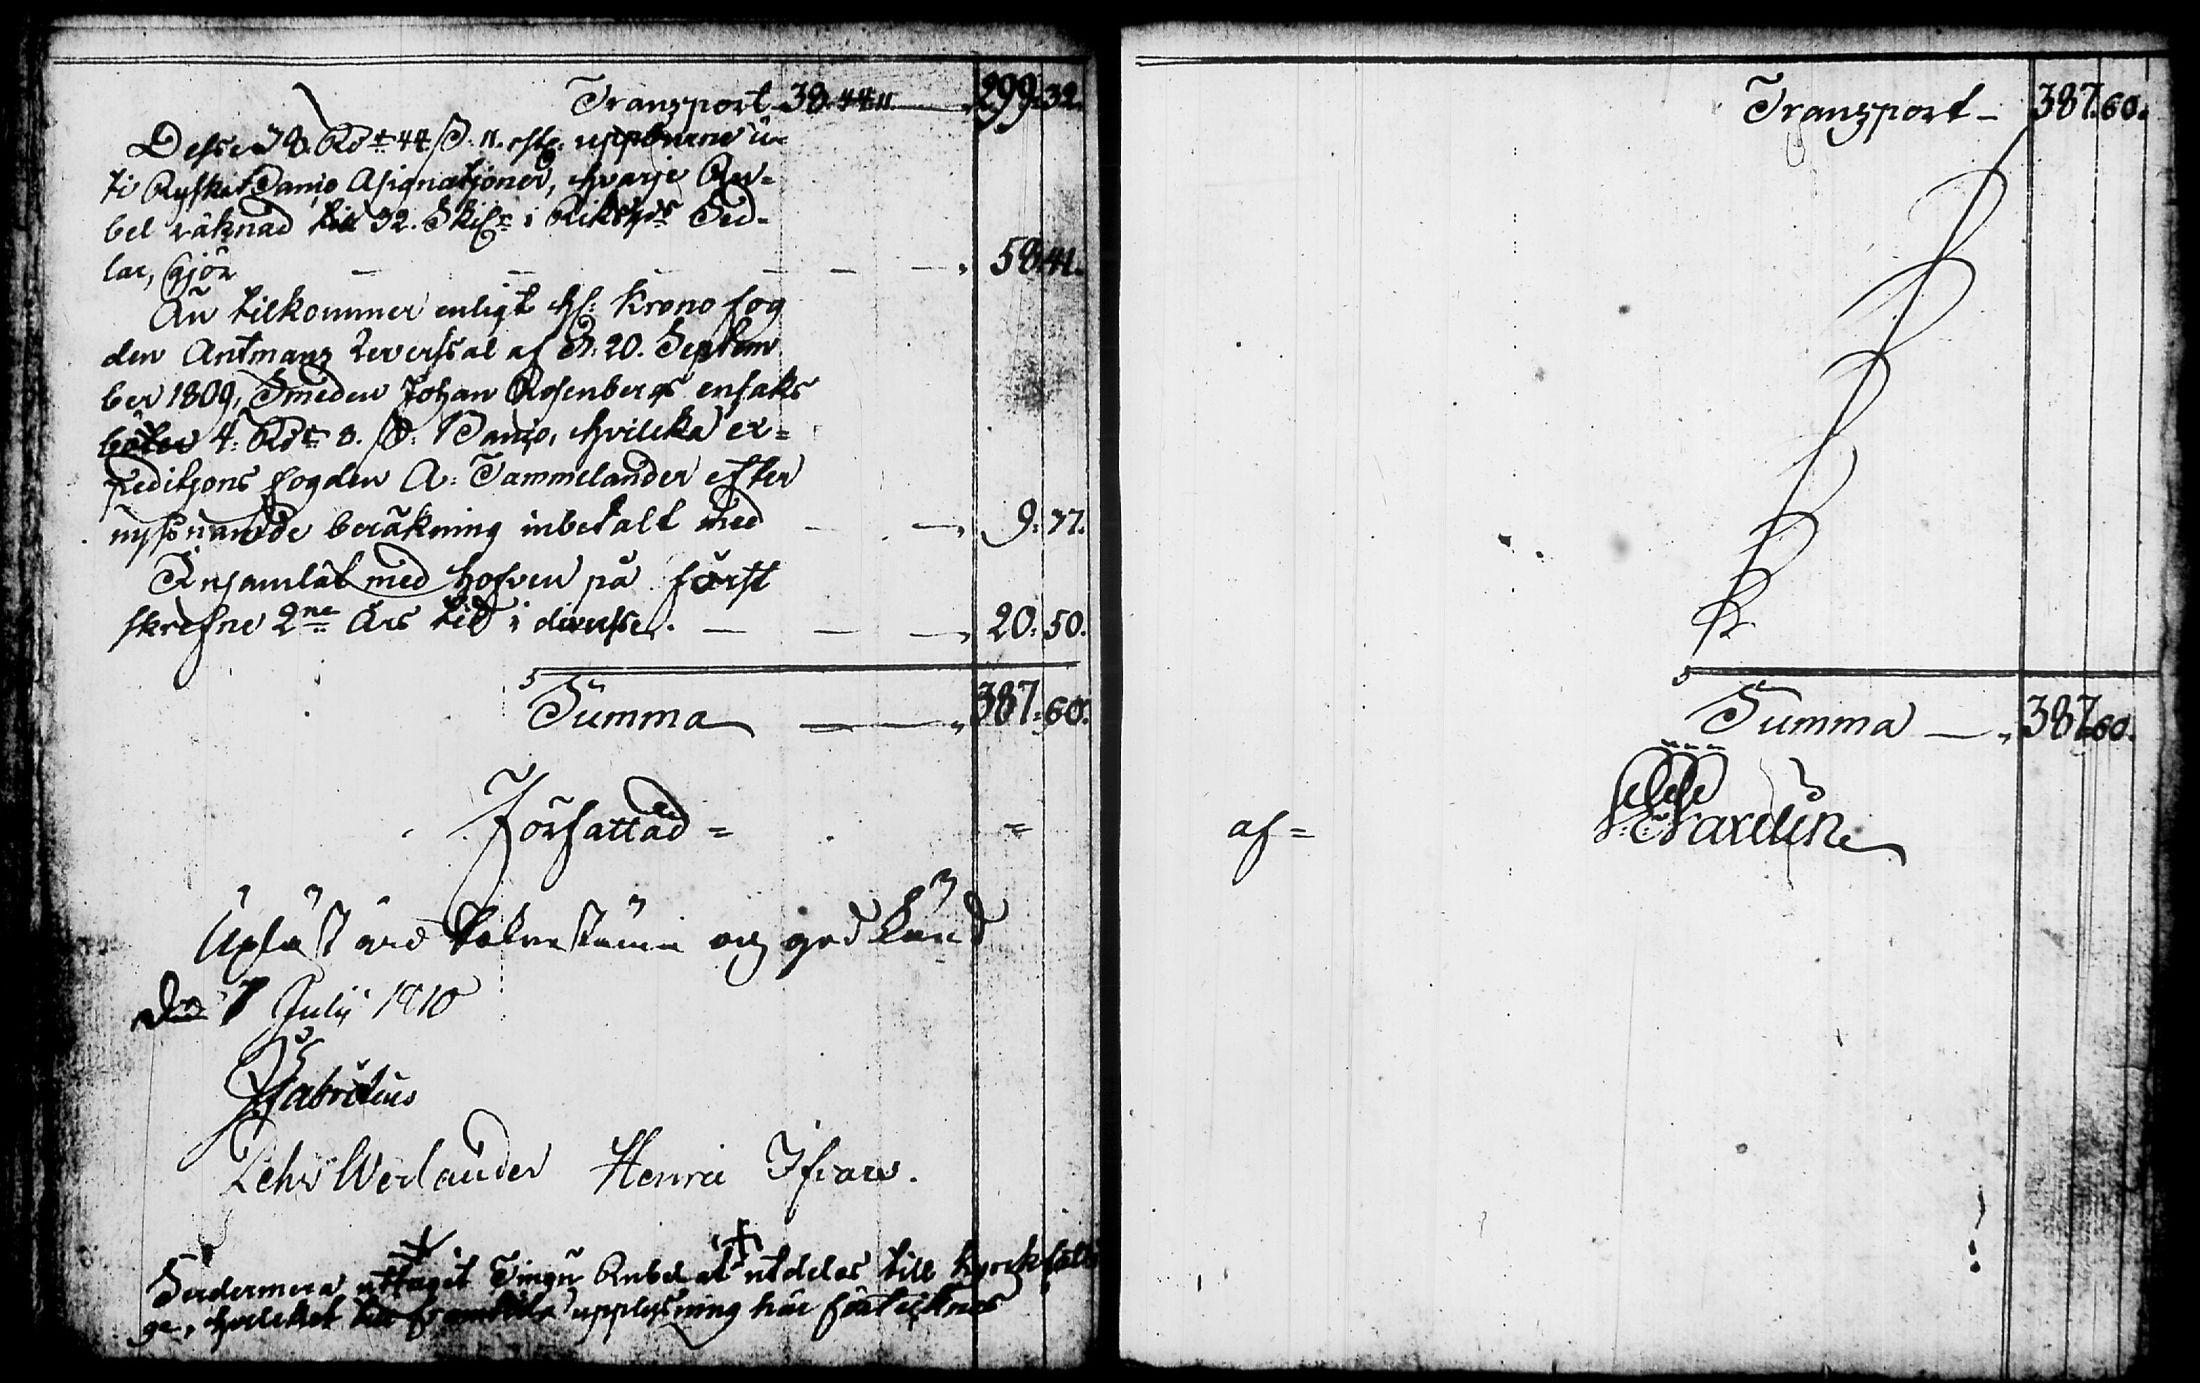 Transport 38.44.11. 299.32.
Desse 38. Rd:r 44 ß: 11. rst: uppburne ü-
ti Ryska Banco Asignatjoner, hvarje Ru-
bel räknad till 32. Skil:r i Riksg:ds Sed-
lar, gjör 58.41.
Än tilkommer enligt H: Krono fog
den Antmans Reverssal af d: 20. Septem
ber 1809, Smeden Johan Rosenbergs ensaks
böter 4: Rd:r 8. ß: Banco, hvilcka ex=
peditjons fogden A: Tammelander efter
nyssnamde beräkning inbetalt med 9.77.
Insamlat med hofven på först
skrefne 2ne Års tid i diverse. 20.50.
Summa 387.60.
Författad =
Upläst wid Sokne stäma og god känd
den 7 Julij 1810
Fabritius
Werlander Henric
Sedermera uttagit Tingu Rubel at utdelas till
ge, hvilcket till upplysning här förtecknas
Transport 387.60.
Summa 387.60.
af =